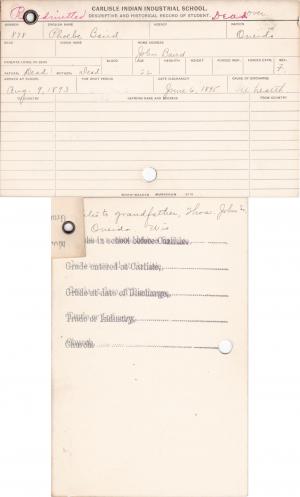 Readmitted Dead over
CARLISLE INDIAN INDUSTRIAL SCHOOL.
DESCRIPTIVE AND HISTORICAL RECORD OF STUDENT.
NUMBER ENGLISH NAME AGENCY NATION
878 Phoebe Baird Oneida
BAND INDIAN NAME HOME ADDRESS
John Baird
PARENTS LIVING OR DEAD BLOOD AGE HEIGHT WEIGHT FORCED INSP. FORCED EXPR. SEX
FATHER Dead MOTHER Dead F.
ARRIVED AT SCHOOL FOR WHAT PERIOD DATE DISCHARGED CAUSE OF DISCHARGE
Aug. 9, 1893 June 6, 1895 Ill health
TO COUNTRY PATRONS NAME AND ADDRESS FROM COUNTRY
to grandfather, Thos. John
Oneida Wis
in school before Carlisle,
Grade entered at Carlisle,
Grade at date of Discharge,
Trade or Industry,
Church